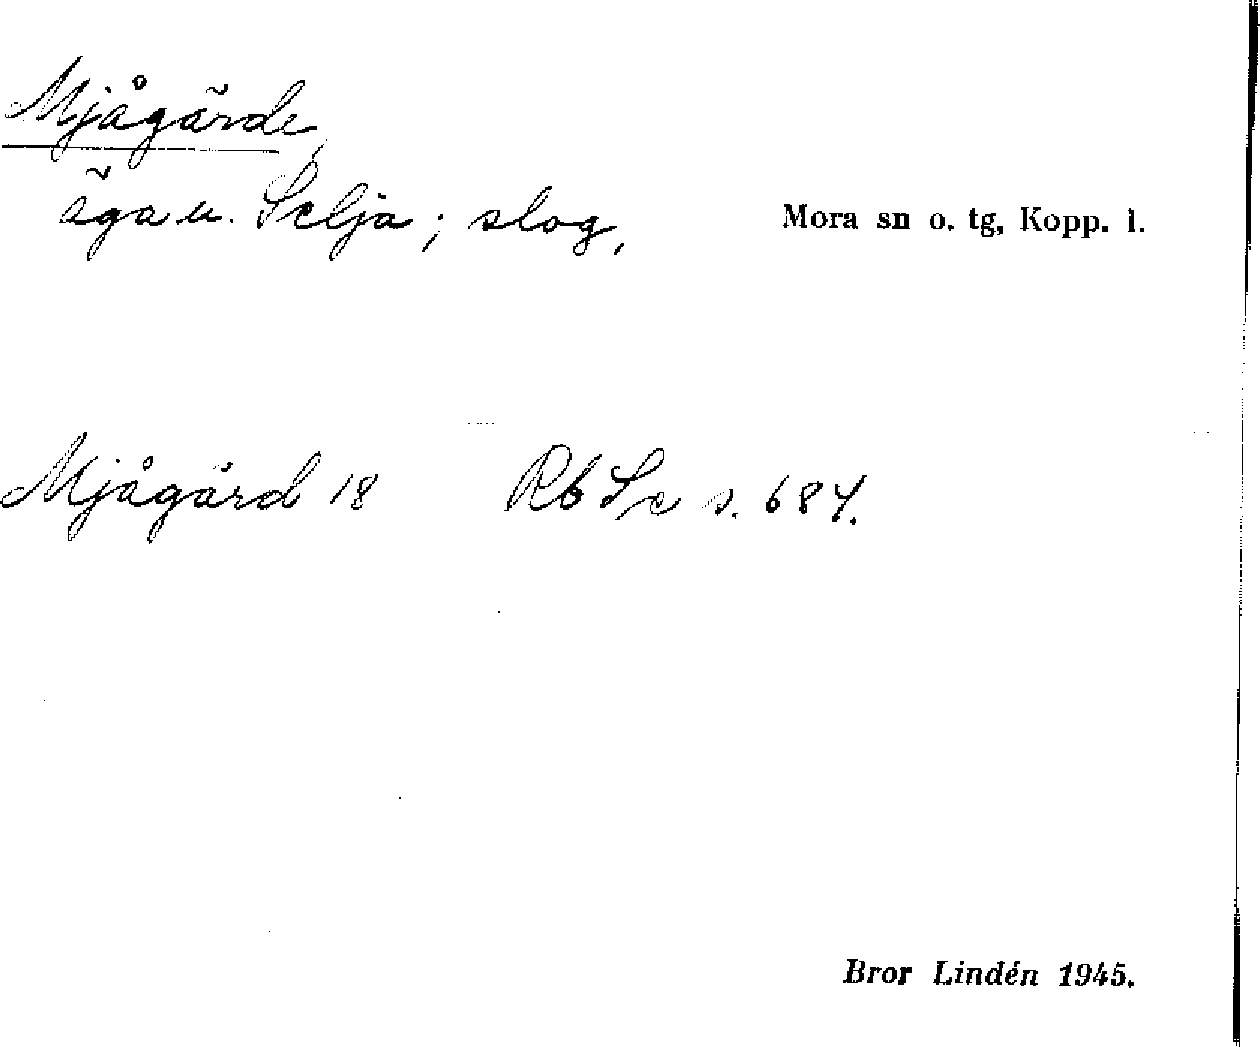 Mjågärde,
äga u. Selja; slog.
Mora sn o. tg, Kopp. l.
Mjågärd 18 Rb Se s. 684.
Bror Lindén 1945.